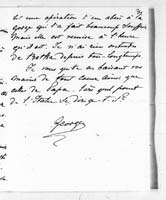 fait une opération d'un abcès à la
gorge qui l'a fait beaucoup souffrir
mais elle est remise à l'heure
qu'il est. Je n'ai rien entendu
de Botha depuis bien longtemps
Je vous quitte en baisant vos
mains de tout cœur ainsi que
celles de Papa.
de
Georges